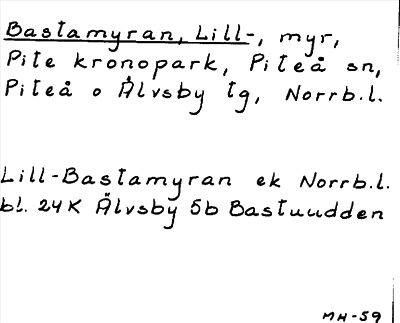 Bastamyran, Lill-, myr,
Pite kronopark, Piteå sn,
Piteå o Älvsby tg, Norrb.l.
Lill-Bastamyran ek Norrb.l.
bl. 24K Älvsby 5b Bastuudden
MH-59